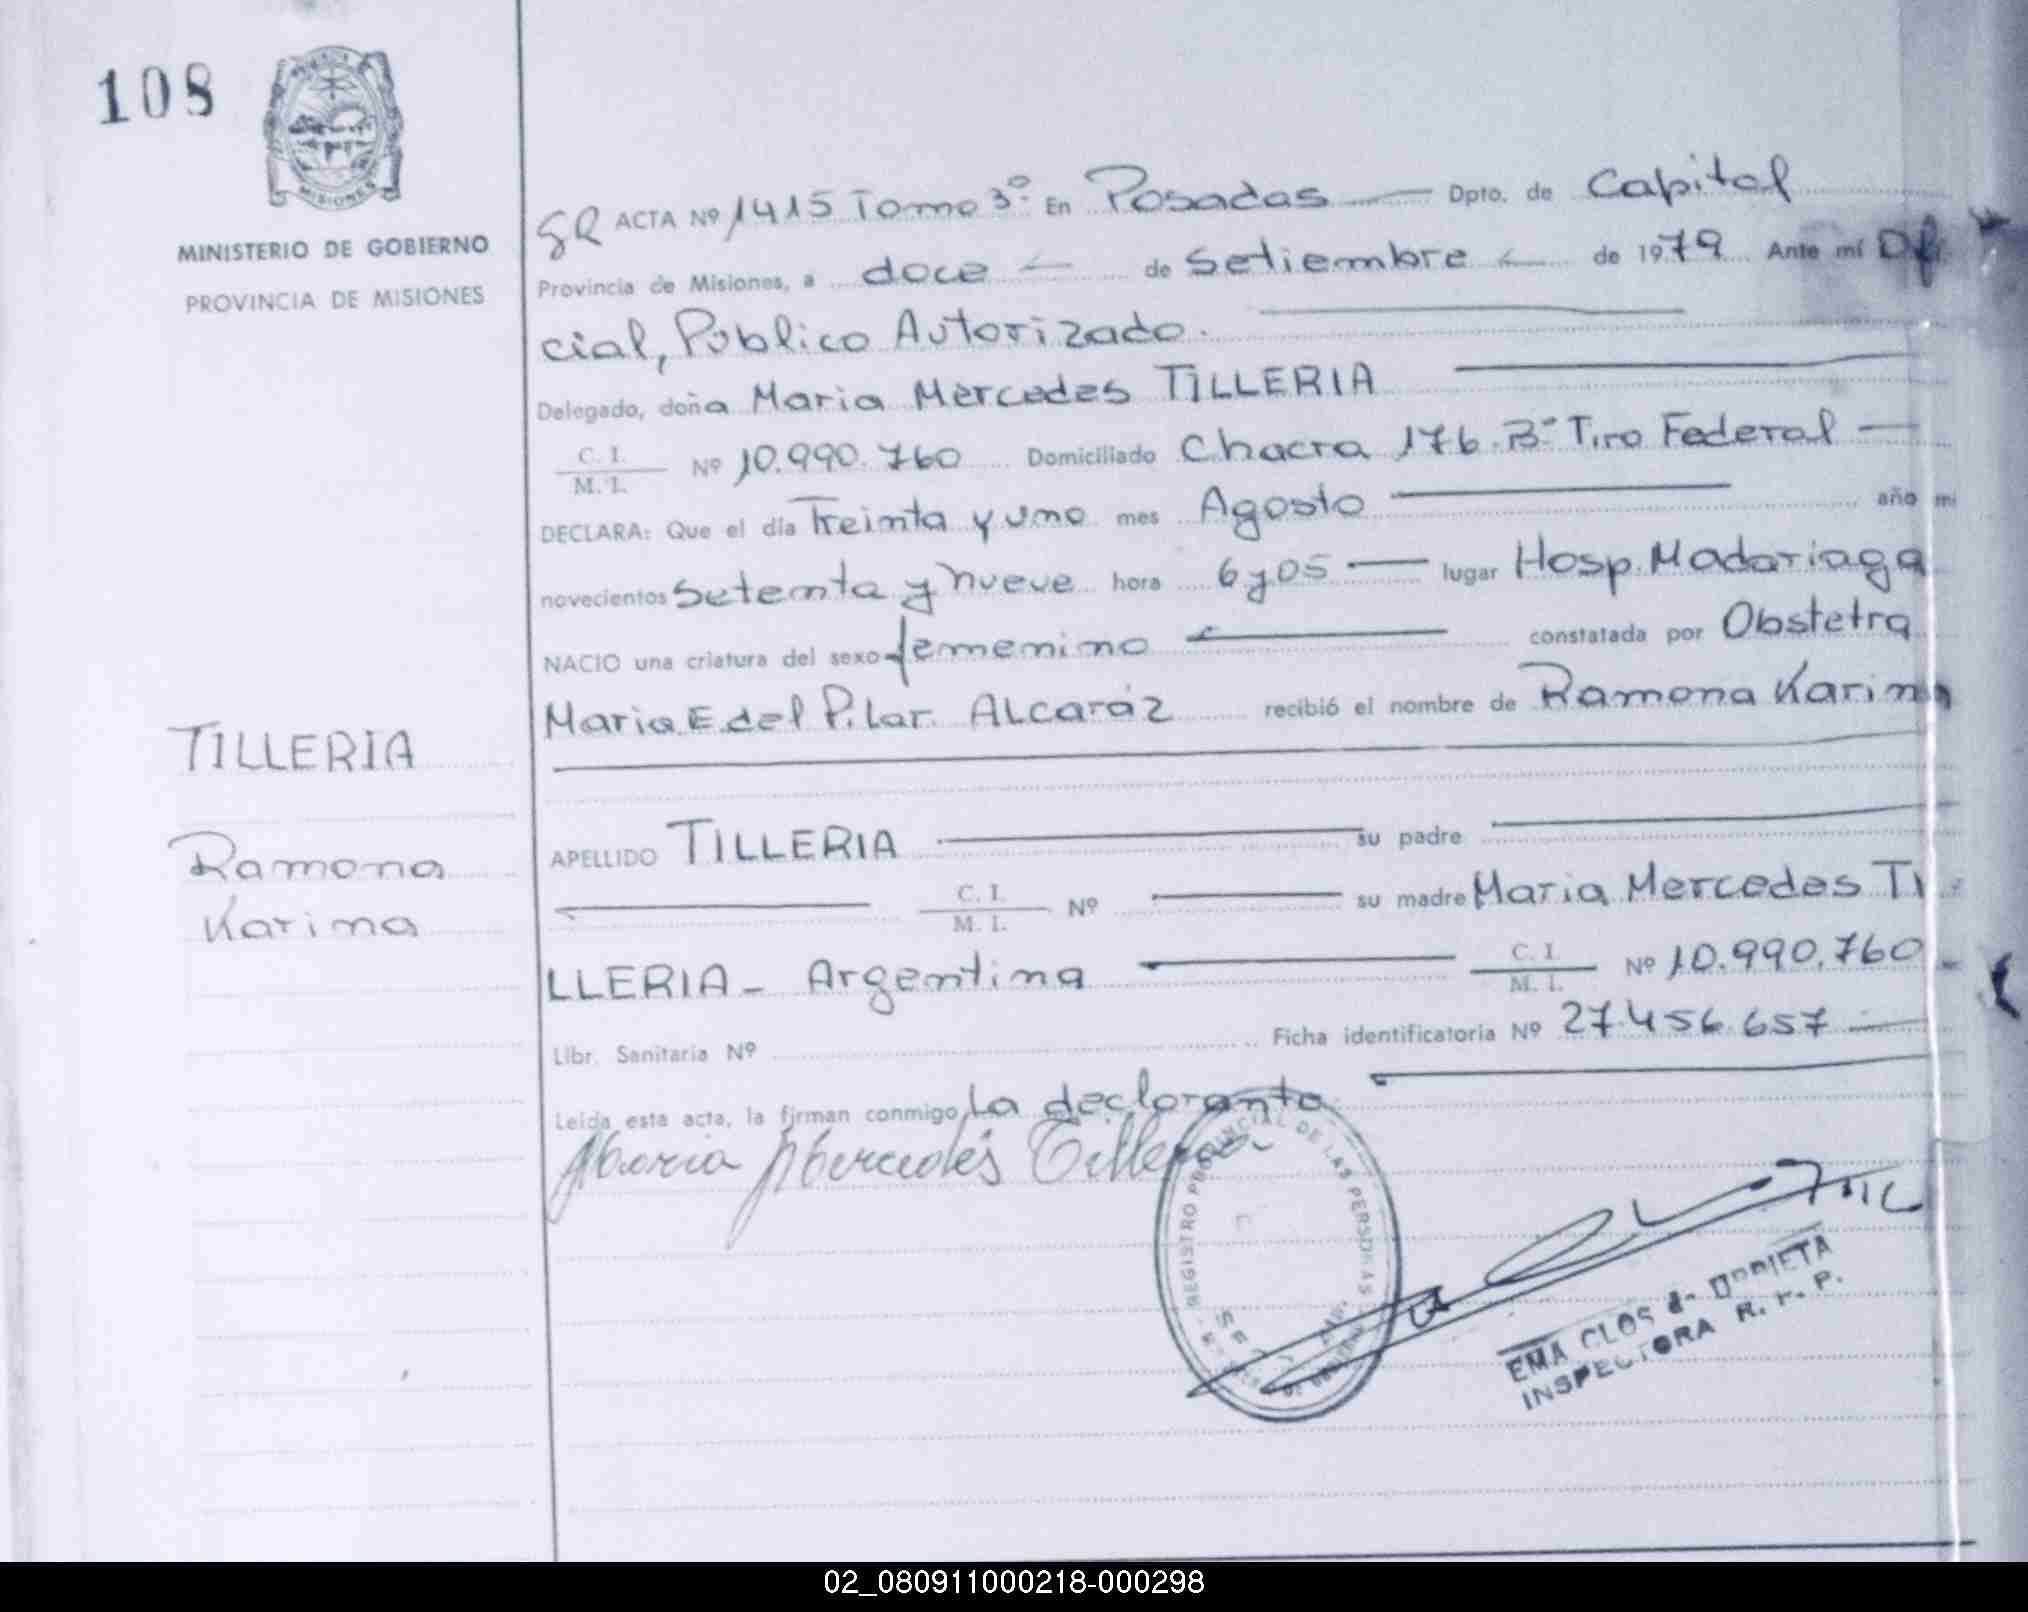 108
PROVINCIA DE
MISIONES
MINISTERIO DE GOBIERNO
PROVINCIA DE MISIONES
ACTA Nº 1415 Tomo 3º En Posadas Dpto. de Capital
Provincia de Misiones, a doce de Setiembre de 1979 Ante mí Ofi
cial, Público Autorizado.
Delegado, doña Maria Mercedes TILLERIA
C. I.
M. I. Nº 10.990.760 Domiciliado Chacra 176. Bº Tiro Federal
DECLARA: Que el día Treinta y uno mes Agosto año mi
novecientos Setenta y nueve hora 6 y 05 lugar Hosp. Madariaga
NACIO una criatura del sexo femenino constatada por Obstetra
Maria E. del Pilar ALCaráz recibió el nombre de Ramona Karina
TILLERIA
Ramona
Karina
APELLIDO TILLERIA su padre
C. I.
M. I. Nº su madre Maria Mercedes TI
LLERIA - Argentina C. I.
M. I. Nº 10.990.760
Libr. Sanitaria Nº Ficha identificatoria Nº 27.456.657
Leída esta acta, la firman conmigo, La declarante.
Maria Mercedes Tilleria
REGISTRO PROVINCIAL DE LAS PERSONAS
EMA CLOS d- URRIETA
INSPECTORA R. P. P.
02_080911000218-000298